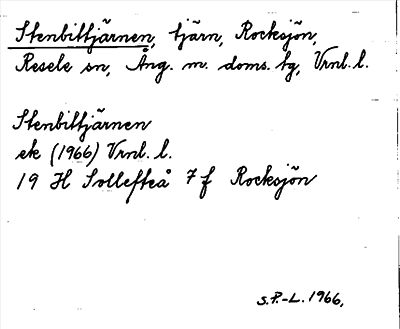 Stenbittjärnen, tjärn, Rocksjön,
Resele sn, Ång. m. doms. tg, Vrnl. l.
Stenbittjärnen
ek (1966) Vrnl. l.
19 H Sollefteå 7 f Rocksjön
S.P.-L. 1966.